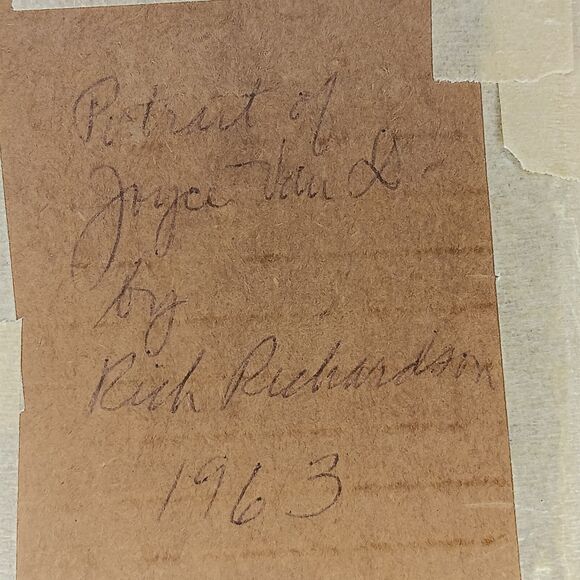 Portrait of
Joyce Van D-
by
Rich Richardson
1963